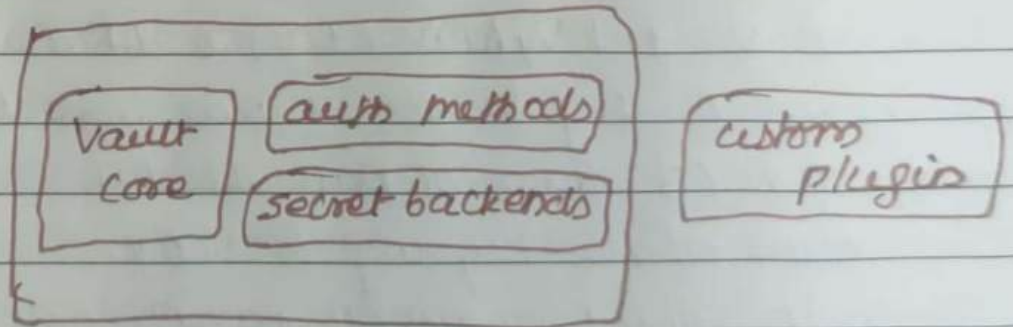 vault
core
auth methods
secret backends
custom
plugin